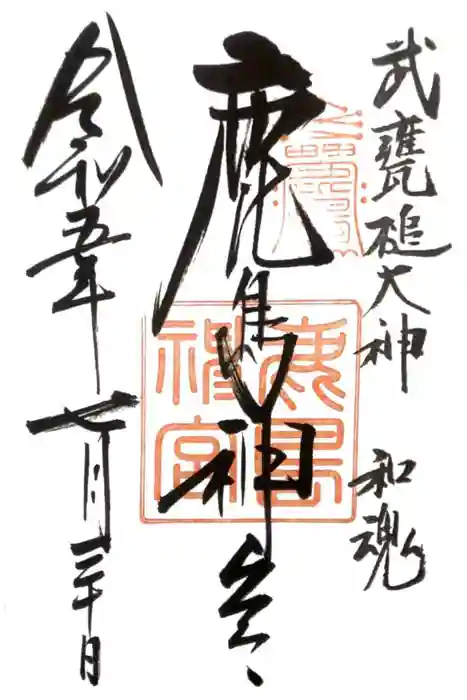 武甕槌大神 和魂
鹿島神宮
鹿島神宮
令和五年 七月三十日